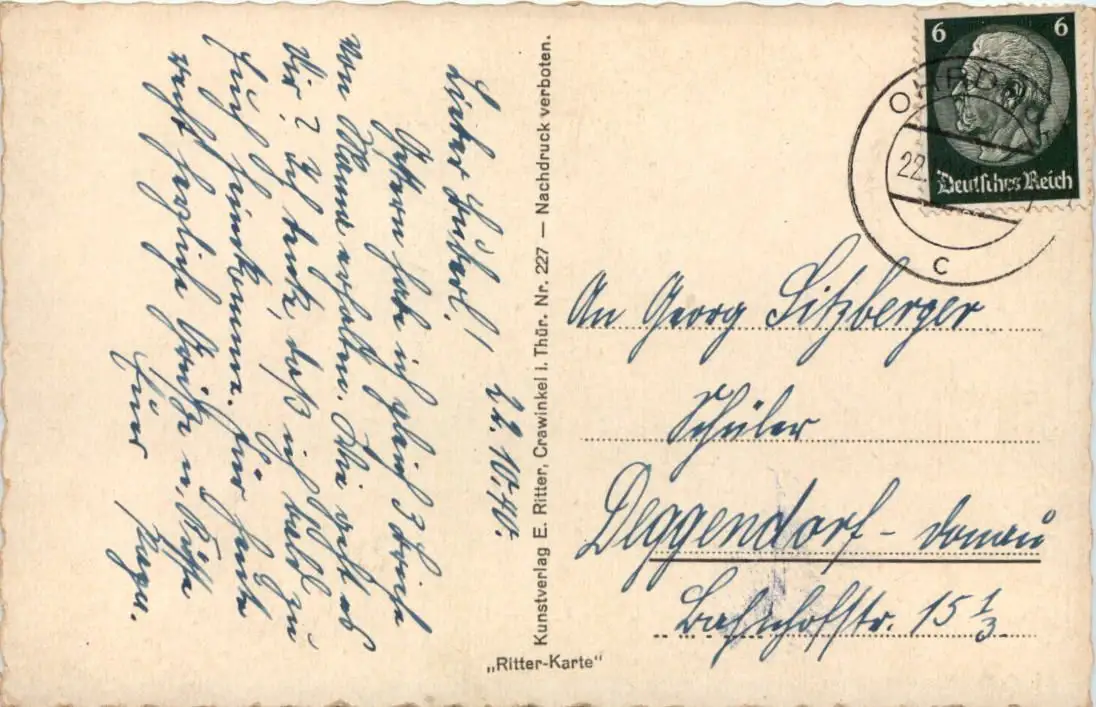 Lieber
22.10.40.
Gestern habe ich gleich 3 Briefe
von Mama erhalten. Wie geht es
Dir? Ich denke, daß ich bald zu
Euch hinkomme. Für heute
recht herzliche Grüße u. Küsse
Euer Papa.
Kunstverlag E. Ritter, Crawinkel i. Thür. Nr. 227 — Nachdruck verboten.
„Ritter-Karte“
6 6
Deutsches Reich
22.
C
An Georg Sitzberger
Schüler
Deggendorf - Donau
Bahnhofstr. 15 1/3.